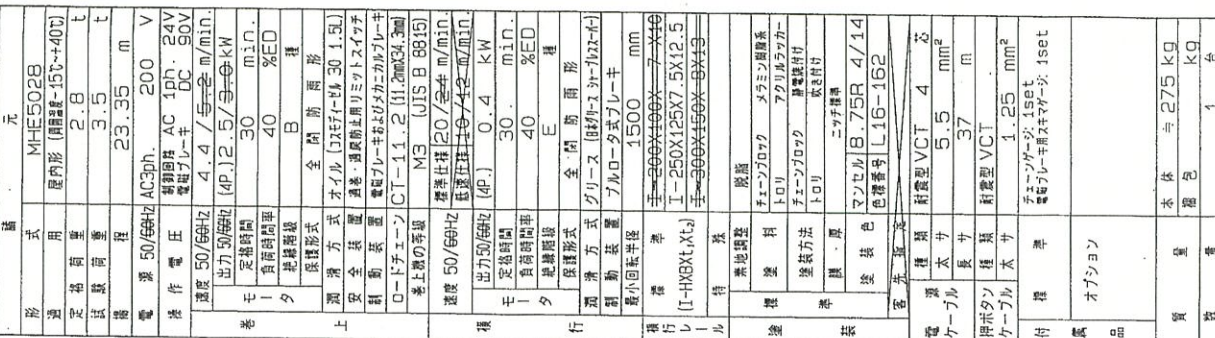 諸 元
形式 MHE5028
適用 屋内形 (周囲温度-15℃~+40℃)
定格荷重 2.8 t
試験荷重 3.5 t
揚程 23.35 m
電源 50/60Hz AC3ph. 200 V
操作電圧 制御回路 AC 1ph. 24V
電磁ブレーキ DC 90V
巻上
速度 50/60Hz 4.4 / 5.2 m/min.
モータ
出力 50/60Hz (4P.) 2.5/3.0 kW
定格時間 30 min.
負荷時間率 40 %ED
絶縁階級 B 種
保護形式 全閉防雨形
潤滑方式 オイル (コスモディーゼル 30 1.5L)
安全装置 過巻・過戻防止用リミットスイッチ
制動装置 電磁ブレーキおよびメカニカルブレーキ
ロードチェーン CT-11.2 (11.2mmX34.3mm)
巻上機の等級 M3 (JIS B 8815)
横行
速度 50/60Hz 標準仕様 20/24 m/min.
低速仕様 10/12 m/min.
モータ
出力50/60Hz (4P.) 0.4 kW
定格時間 30. min.
負荷時間率 40 %ED
絶縁階級 E 種
保護形式 全閉防雨形
潤滑方式 グリース
制動装置 プルロータ式ブレーキ
最小回転半径 1500 mm
横行レール (I-HXBXt₁Xt₂)
標準 I-200X100X 7 X10
I-250X125X7.5X12.5
特殊 I-300X150X 8X13
塗装
標準
素地調整 脱脂
塗料 チェーンブロック メラミン樹脂系
トロリ アクリルラッカー
塗装方法 チェーンブロック 静電焼付け
トロリ 吹き付け
膜・厚 ニッチ標準
塗装色 マンセル 8.75R 4/14
色標番号 L16-162
客先指定
電源ケーブル
種類 耐震型 VCT 4 芯
太サ 5.5 mm²
長サ 37 m
押ボタンケーブル
種類 耐震型 VCT
太サ 1.25 mm²
付属品
標準 チェーンゲージ: 1set
電磁ブレーキ用スキマゲージ: 1set
オプション
質量 本体 ≒275 kg
梱包 kg
数量 1 台